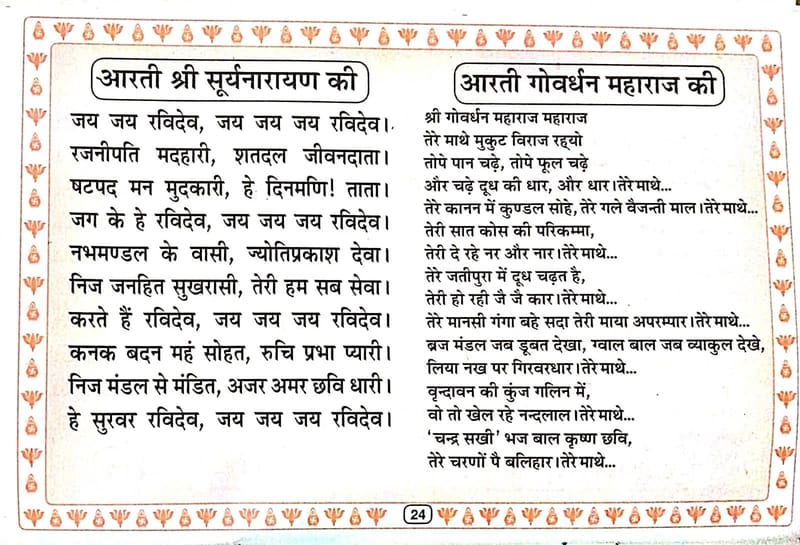 आरती श्री सूर्यनारायण की
जय जय रविदेव, जय जय जय रविदेव।
रजनीपति मदहारी, शतदल जीवनदाता।
षटपद मन मुदकारी, हे दिनमणि! ताता।
जग के हे रविदेव, जय जय जय रविदेव।
नभमण्डल के वासी, ज्योतिप्रकाश देवा।
निज जनहित सुखरासी, तेरी हम सब सेवा।
करते हैं रविदेव, जय जय जय रविदेव।
कनक बदन महं सोहत, रुचि प्रभा प्यारी।
निज मंडल से मंडित, अजर अमर छवि धारी।
हे सुरवर रविदेव, जय जय जय रविदेव।
आरती गोवर्धन महाराज की
श्री गोवर्धन महाराज महाराज
तेरे माथे मुकुट विराज रह्यो
तोपे पान चढ़े, तोपे फूल चढ़े
और चढ़े दूध की धार, और धार।तेरे माथे...
तेरे कानन में कुण्डल सोहे, तेरे गले वैजन्ती माल।तेरे माथे...
तेरी सात कोस की परिकम्मा,
तेरी दे रहे नर और नार।तेरे माथे...
तेरे जतीपुरा में दूध चढ़त है,
तेरी हो रही जै जै कार।तेरे माथे...
तेरे मानसी गंगा बहे सदा तेरी माया अपरम्पार।तेरे माथे...
ब्रज मंडल जब डूबत देखा, ग्वाल बाल जब व्याकुल देखे,
लिया नख पर गिरवरधार।तेरे माथे...
वृन्दावन की कुंज गलिन में,
वो तो खेल रहे नन्दलाल।तेरे माथे...
'चन्द्र सखी' भज बाल कृष्ण छवि,
तेरे चरणों पै बलिहार।तेरे माथे...
24